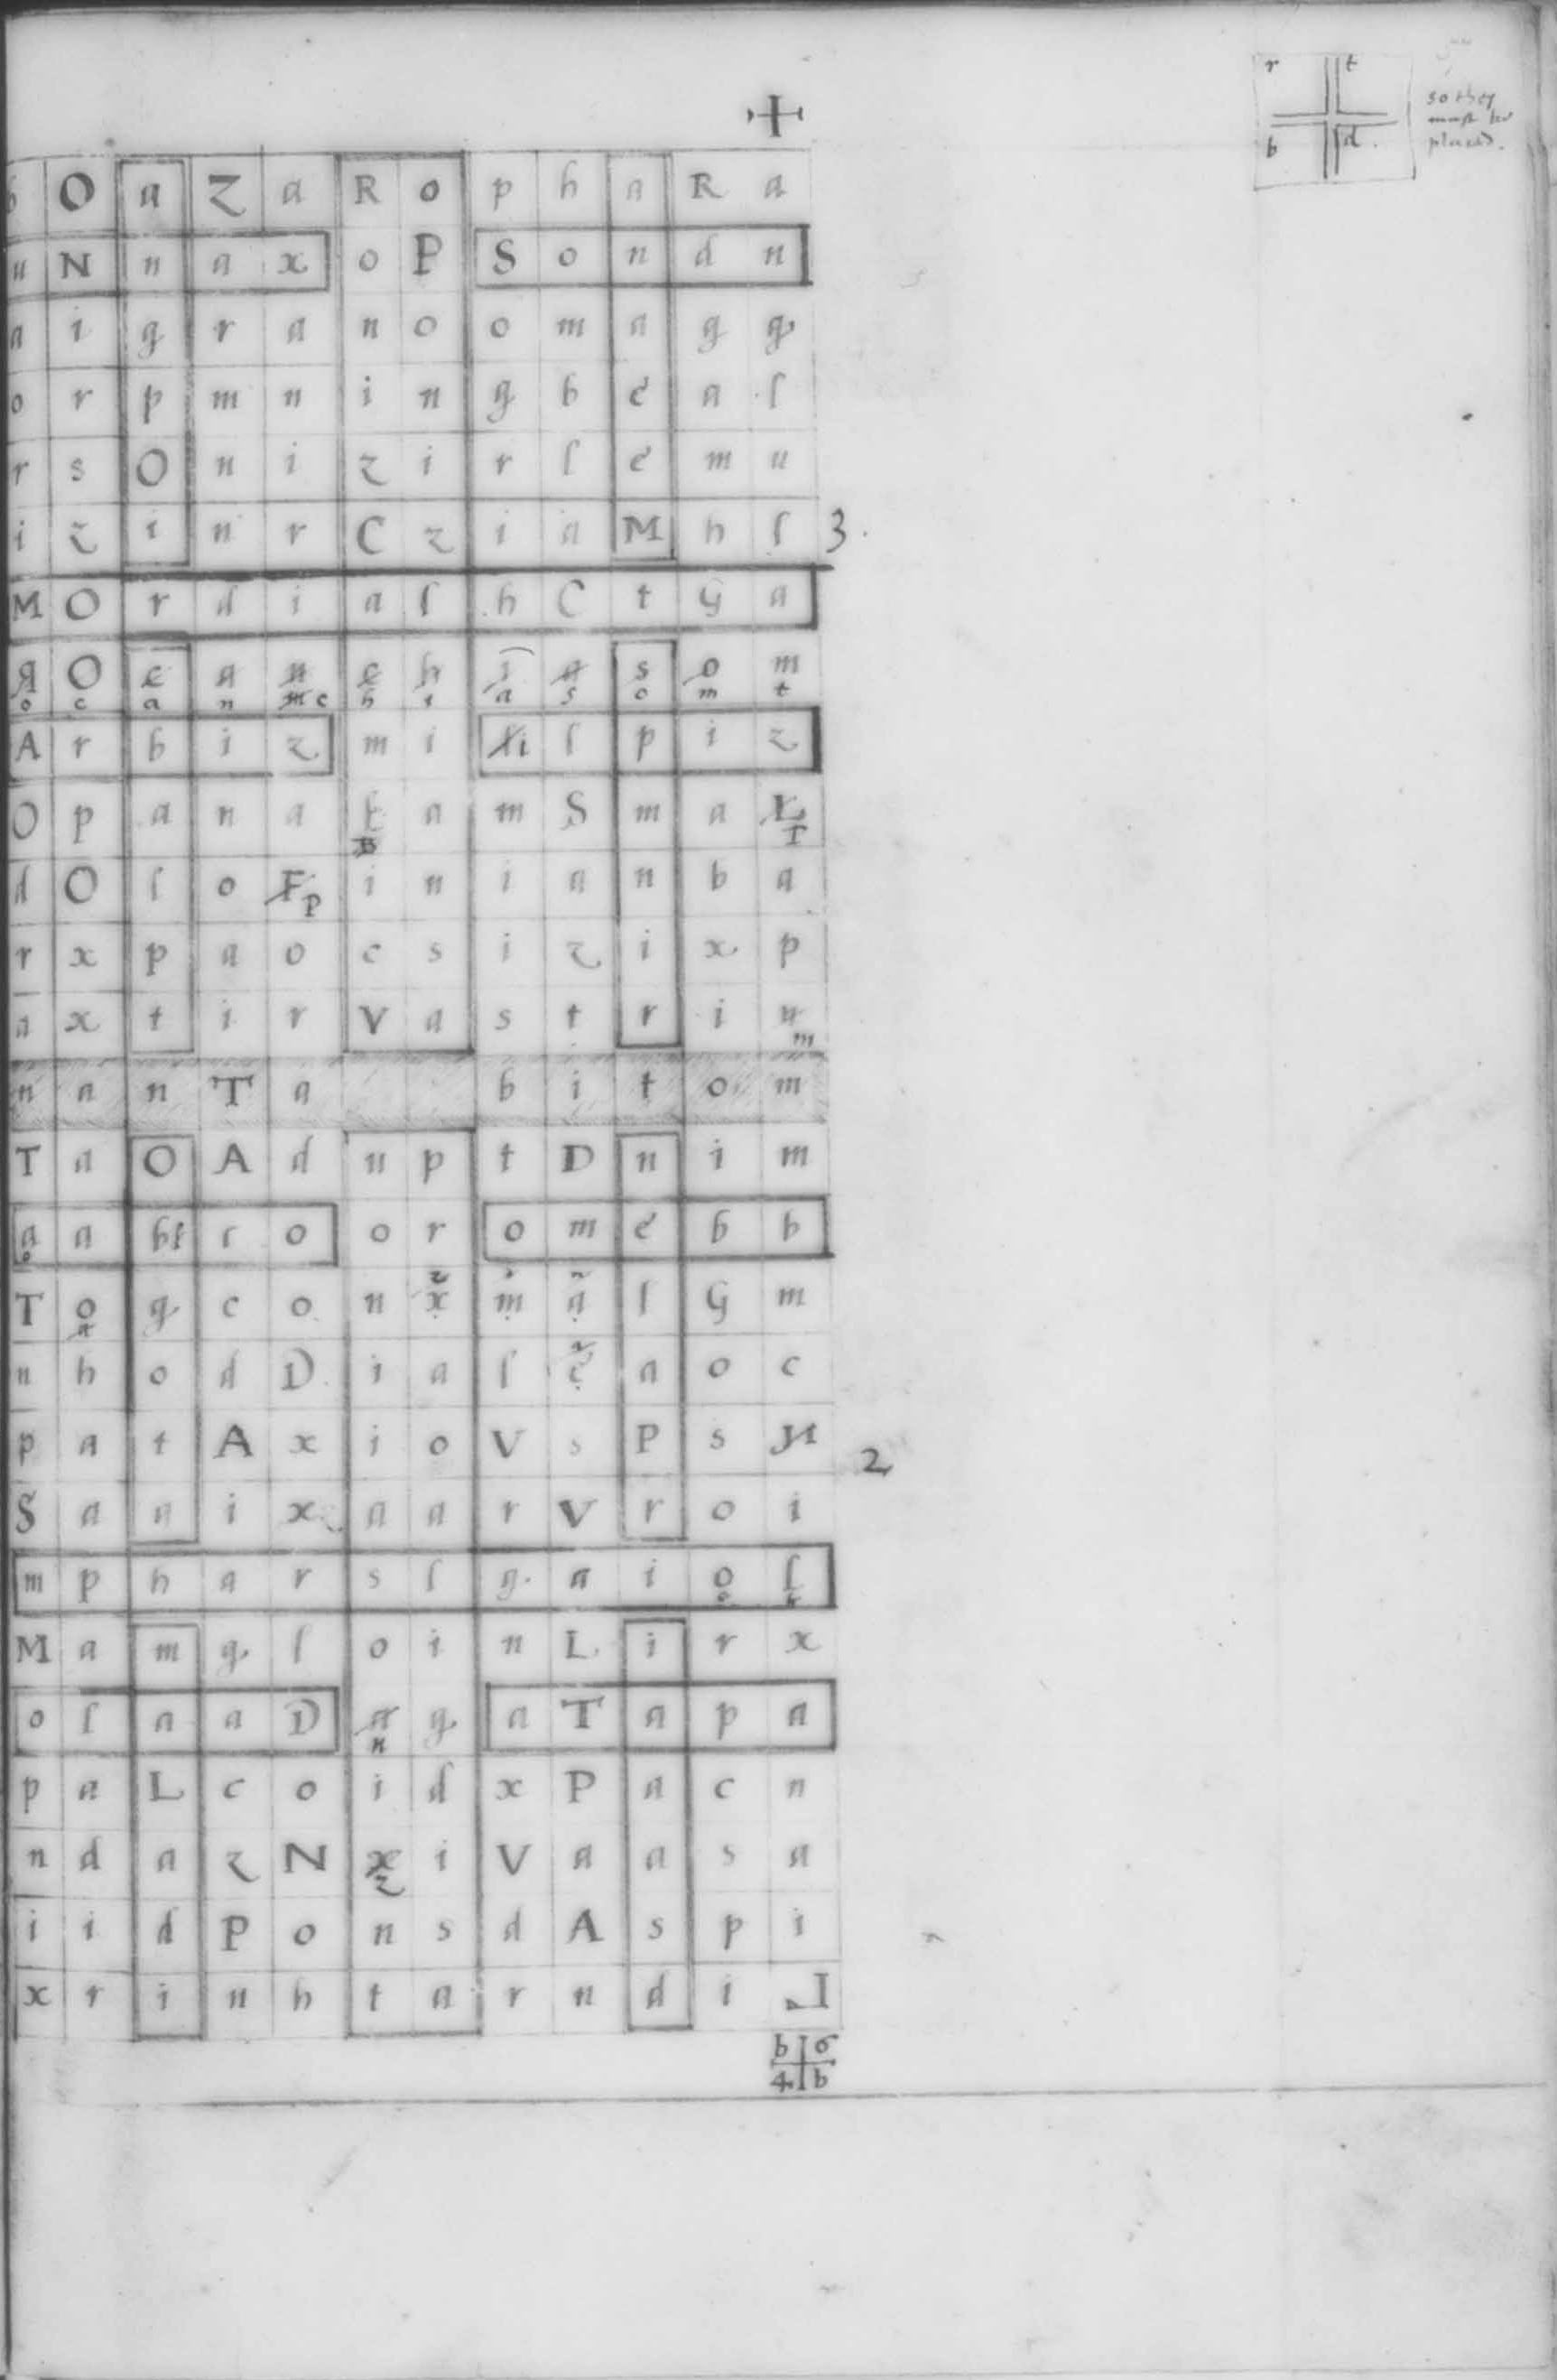 r t
b d.
so they
must be
placed.
b O a Z a R o p h a R a
u N n a x o P S o n d n
a i g r a n o o m a g g
o r p m n i n g b e a l
r s O n i z i r l e m u
i z i n r C z i a M h l 3.
M O r d i a l h C t G a
O c a n c h i a s o m
o c a n c h i a s o m t
A r b i z m i i l p i z
O p a n a B a m S m a T
d O l o P i n i a n b a
r x p a o c s i z i x p
a x t i r V a s t r i u
m
n a n T a b i t o m
T a O A d u p t D n i m
a a b l r o o r o m e b b
o
T o g c o n x m a l G m
a
n h o d D i a l e a o c
p a t A x i o V s P s N 2
S a a i x a a r V r o i
m p h a r s l g a i o l
M a m g l o i n L i r x
o l a a D n g a T a p a
p a L c o i d x P a c n
n d a z N z i V a a s a
i i d P o n s d A s p i
x r i n h t a r n d i L
b 6
4 b